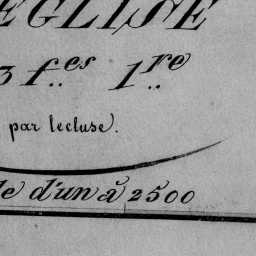 EGLISE
3 f.es 1.re
par lecluse.
le d'un à 2500